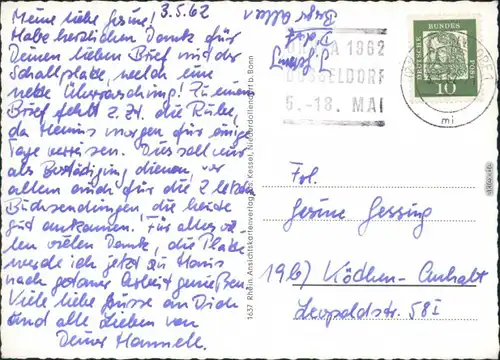 Meine liebe Gesine! 3.5.62
Habe herzlichen Dank für
Deinen lieben Brief mit der
Schallplatte, welch eine
nette Überraschung! Zu einem
Brief fehlt z. Zt. die Ruhe,
da Hennis morgen für einige
Tage verreisen. Dies soll nur
als Bestätigung dienen, vor
allem auch für die 2 letzten
Büchsendungen die heute
gut ankamen. Für alles
vielen Dank, die Platte
werde ich jetzt zu Haus
nach getaner Arbeit genießen.
Viele liebe Grüsse an Dich
und alle Lieben von
Deiner Hannele.
1637 Rhein. Ansichtskartenverlag Kessel, Niederdollendorf b. Bonn
1962
DÜSSELDORF
5.-18. MAI
DEUTSCHE
BUNDES
POST
10
mi
Frl.
Gesine Gessing
19b) Köthen-Anhalt
Leopoldstr. 58 I